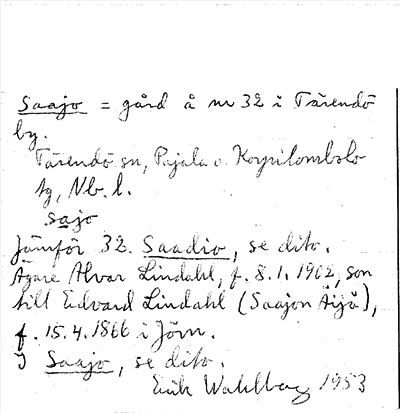 Saajo = gård å nr 32 i Tärendö
by.
Tärendö sn, Pajala o. Korpilombolo
tg, Nb. l.
sajo
Jämför 32. Saadio, se dito.
Ägare Alvar Lindahl, f. 8.1.1902, son
till Edvard Lindahl (Saajon Äijä),
f. 15.4.1866 i Jörn.
J Saajo, se dito.
Erik Wahlberg 1953